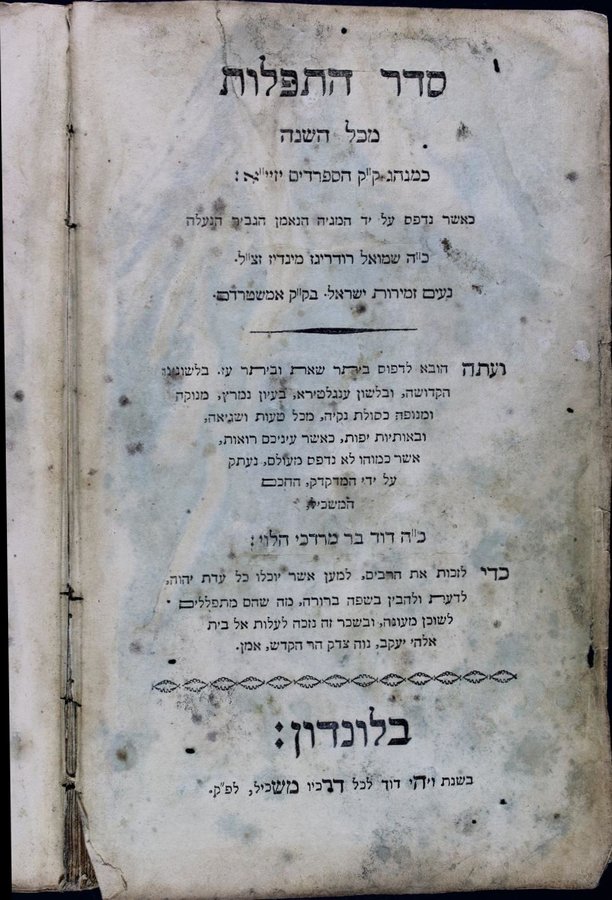 סדר התפלות
מכל השנה
כמנהג ק״ק הספרדים יזיי״א:
כאשר נדפס על יד המגיה הנאמן הגביר הנעלה
כ״ה שמואל רודריגז מינדיז זצ״ל.
נעים זמירות ישראל. בק״ק אמשטרדם.
ועתה הובא לדפוס ביתר שאת וביתר עז. בלשונינו
הקדושה, ובלשון ענגלטירא, בעיון נמרץ, מנוקה
ומנופה כסולת נקיה, מכל טעות ושגיאה,
ובאותיות יפות, כאשר עיניכם רואות,
אשר כמוהו לא נדפס מעולם, נעתק
על ידי המדקדק, החכם
המשכיל,
כ״ה דוד בר מרדכי הלוי:
כדי לזכות את הרבים, למען אשר יוכלו כל עדת יהוה,
לדעת ולהבין בשפה ברורה, מה שהם מתפללים
לשוכן מעונה, ובשכר זה נזכה לעלות אל בית
אלהי יעקב, נוה צדק הר הקדש, אמן.
בלונדון:
בשנת ויהי דוד לכל דרכיו משכיל, לפ״ק.